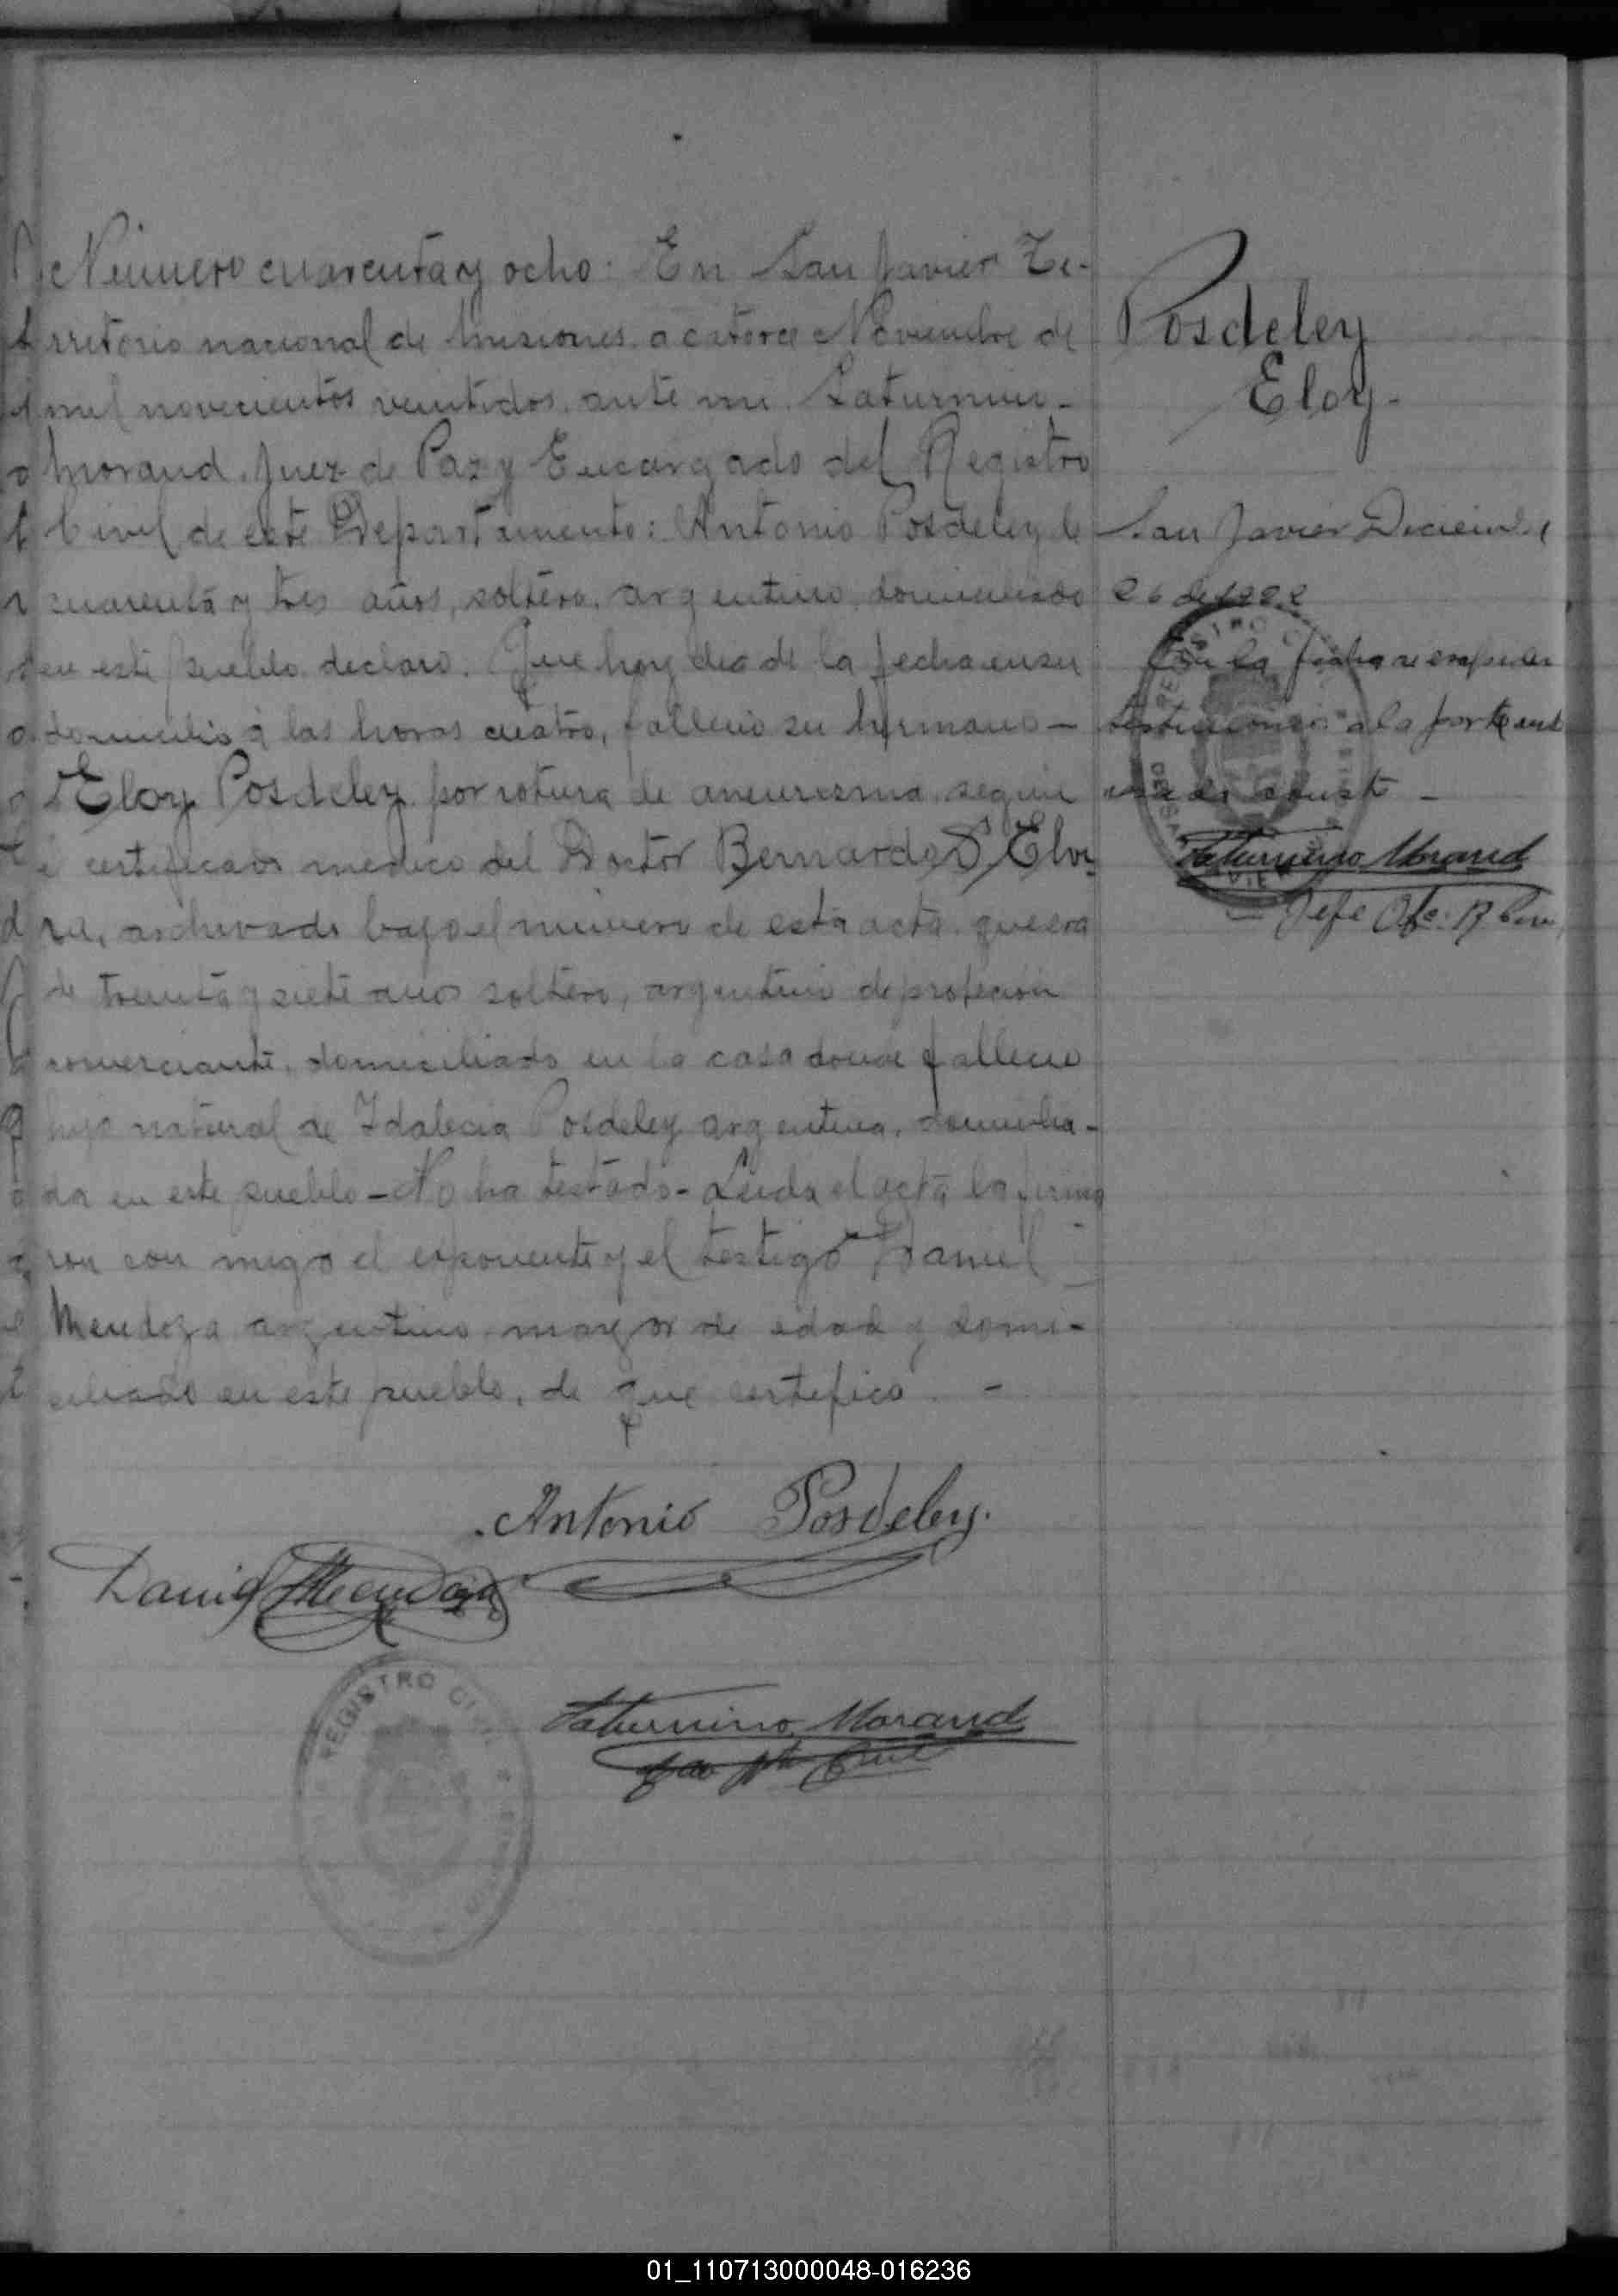 Número cuarenta y ocho: En San Javier Te-
rritorio nacional de Misiones a catorce Noviembre de
mil novecientos veintidos, ante mi Saturnino
Morand, Juez de Paz y Encargado del Registro
Civil de este Departamento: Antonio Posdeley de
cuarenta y tres años, soltero, argentino, domiciliado
en este pueblo declaro: Que hoy dia de la fecha en su
domicilio á las horas cuatro, fallecio su hermano -
Eloy Posdeley por rotura de aneurisma, segun
certificado medico del Doctor Bernardo
archivado bajo el número de esta acta que era
de treinta y siete años soltero, argentino de profecion
comerciante, domiciliado en la casa donde fallecio
hijo natural de Idalecia Posdeley argentina, domicilia-
da en este pueblo - No ha testado - Leida el acta la firma
ron con migo el exponente y el testigo Daniel
Mendoza argentino mayor de edad y domi-
ciliado en este pueblo, de que certifico. -
Antonio Posdeley.
Daniel Mendoza
REGISTRO CIVIL
Saturnino Morand
Posdeley
Eloy-
San Javier Diciembre
26 de 1922
En la fecha se
testimonio a la parte
REGISTRO
Saturnino Morand
Jefe Ofc. R. Civil
01_110713000048-016236